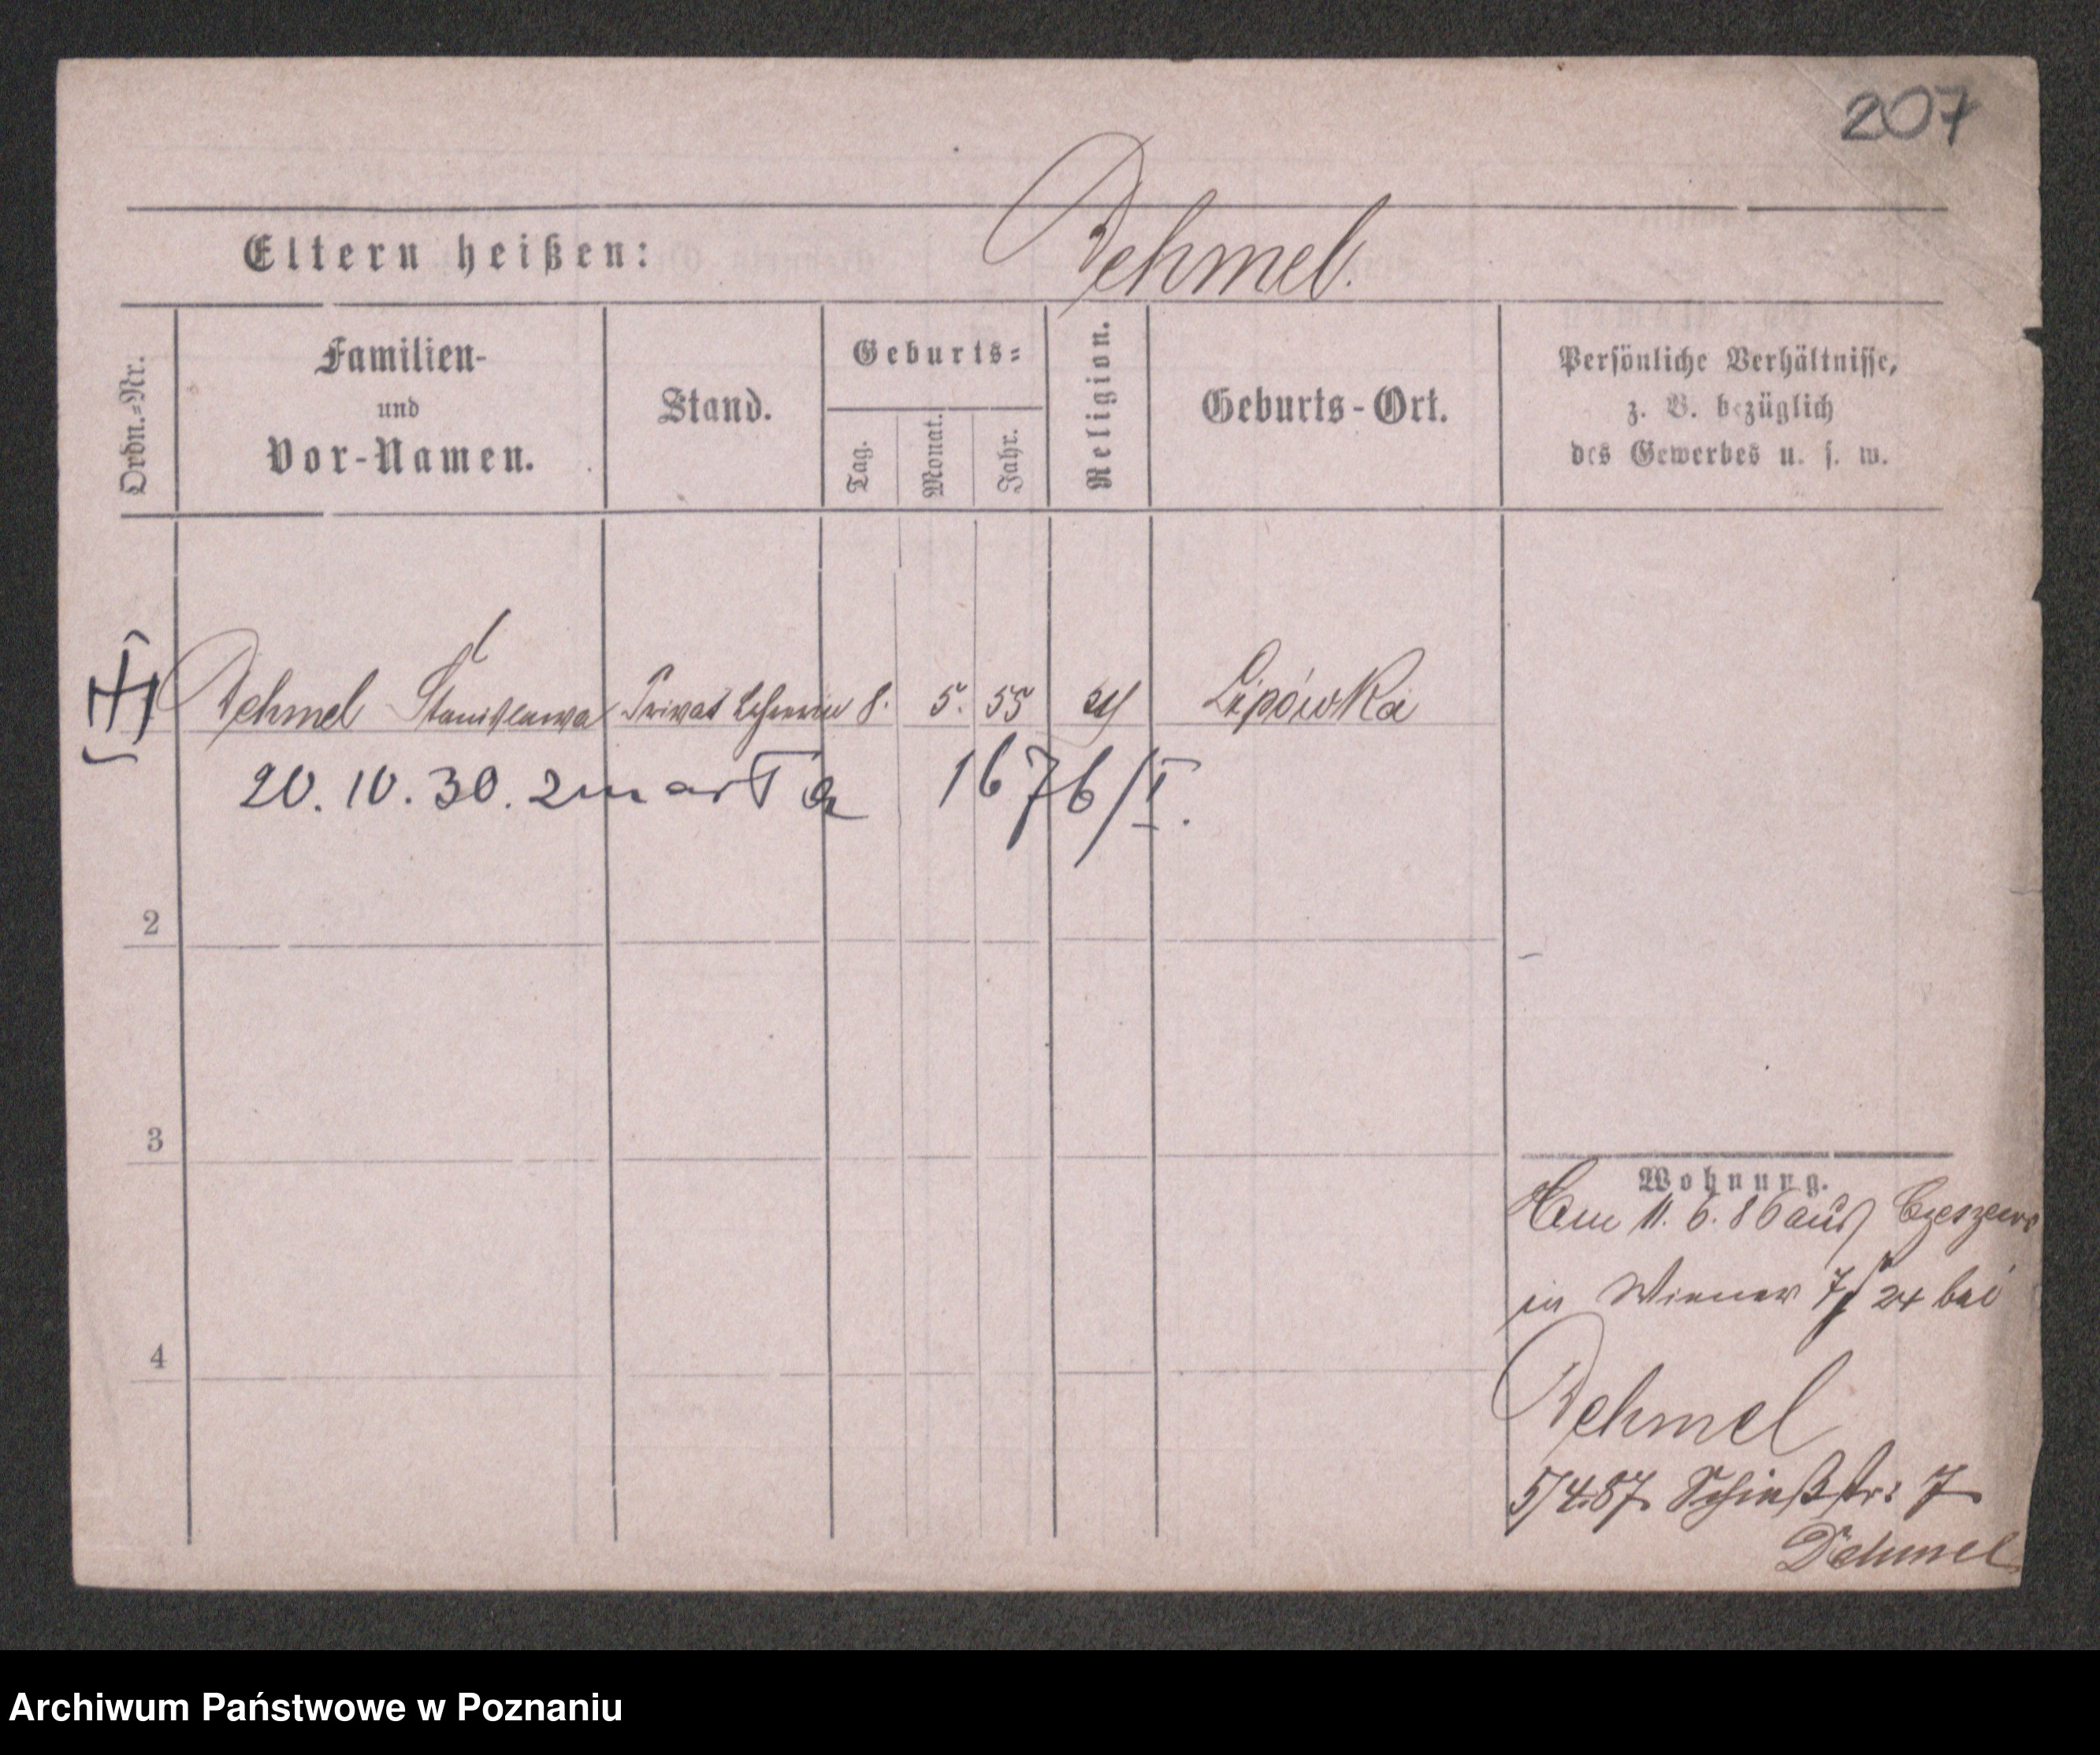 207
Eltern heißen: Dehmel.
Ordn.=Nr.
Familien-
und
Vor-Namen.
Stand.
Geburts=
Tag.
Monat.
Jahr.
Religion.
Geburts-Ort.
Persönliche Verhältnisse,
z. B. bezüglich
des Gewerbes u. s. w.
Dehmel Stanislawa Privat Lehrerin 8. 5. 55 Lipówka
20. 10. 30. zmarła 1676/I.
2
3
4
Wohnung.
11. 6. 86 aus Czeszewo
in Wiener 7/24 bei
Dehmel
5/4.87. Schießstr: 7
Dehmel
Archiwum Państwowe w Poznaniu